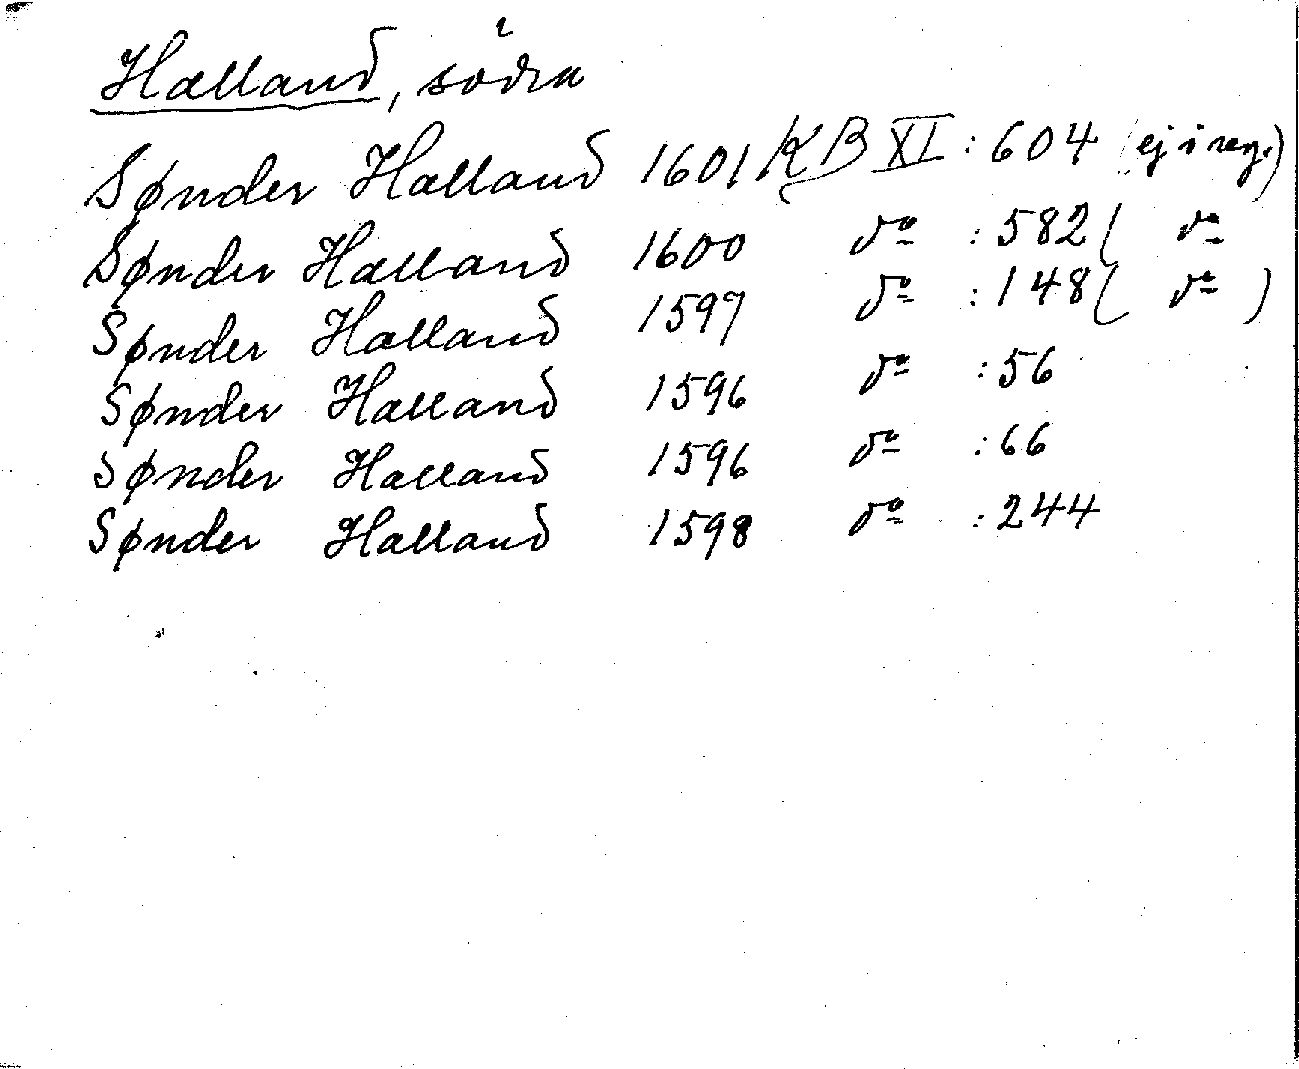 Halland, södra
Sønder Halland 1601 KB XI : 604 (ej i reg.)
Sønder Halland 1600 do : 582 ( do
Sønder Halland 1597 do : 148 ( do )
Sønder Halland 1596 do : 56
Sønder Halland 1596 do : 66
Sønder Halland 1598 do : 244